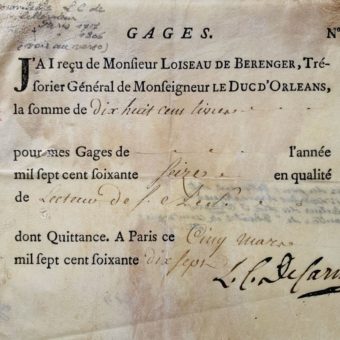 GAGES. N°
J'AI reçu de Monsieur LOISEAU DE BERENGER, Tré-
sorier Général de Monseigneur LE DUC D'ORLEANS,
la somme de dix huit cent livres
pour mes Gages de l'année
mil sept cent soixante seize en qualité
de Lecteur de S.
dont Quittance. A Paris ce Cinq mars
mil sept cent soixante dix sept
L. C. De Carm